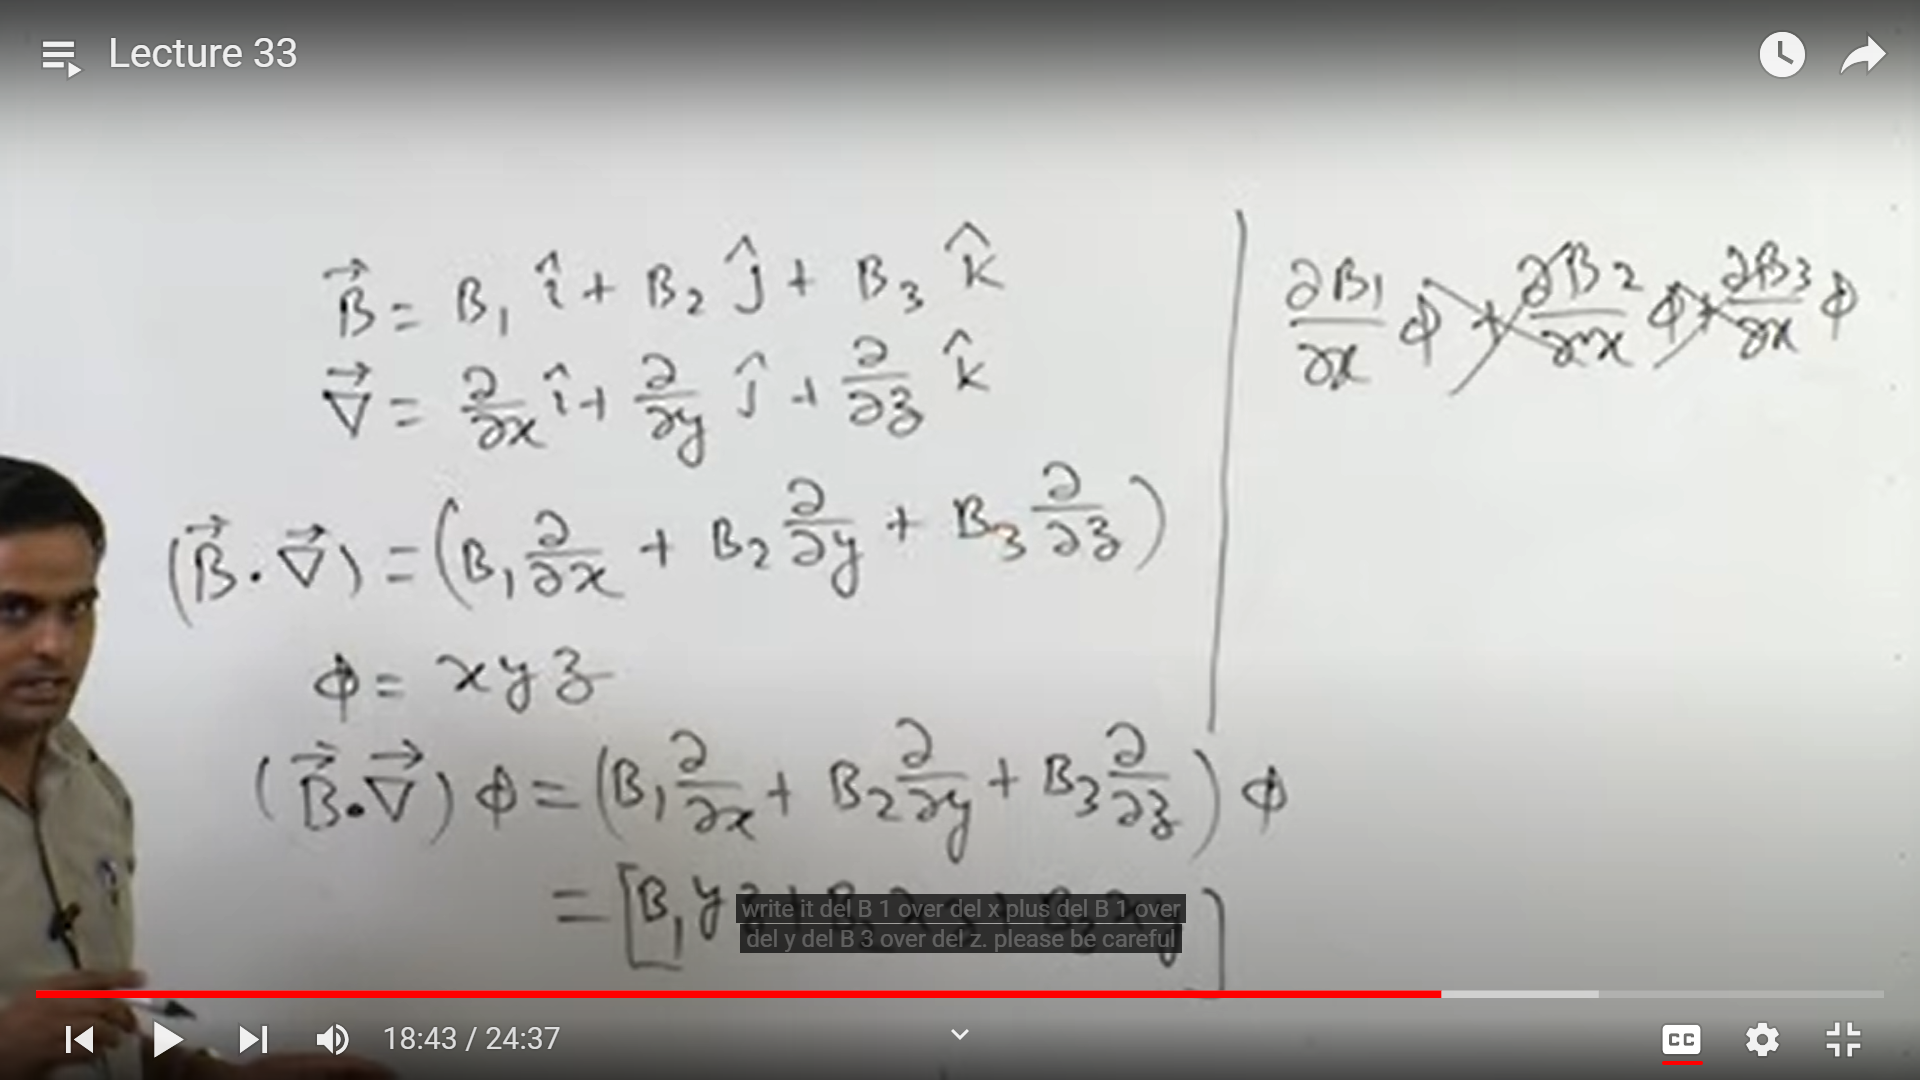 Lecture 33
B⃗ = B₁ î + B₂ ĵ + B₃ k̂
∇⃗ = ∂/∂x î + ∂/∂y ĵ + ∂/∂z k̂
(B⃗ · ∇⃗) = (B₁ ∂/∂x + B₂ ∂/∂y + B₃ ∂/∂z)
φ = xyz
(B⃗ · ∇⃗) φ = (B₁ ∂/∂x + B₂ ∂/∂y + B₃ ∂/∂z) φ
= [B₁ y
∂B₁/∂x φ + ∂B₂/∂x φ + ∂B₃/∂x φ
write it del B 1 over del x plus del B 1 over
del y del B 3 over del z. please be careful
18:43 / 24:37
CC